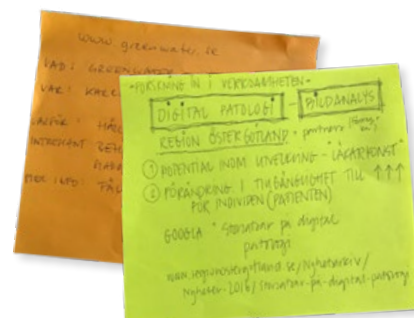 www.greenwater.se
VAD: GREENWATER
VAR: KARL
HÅLL
INTRESSANT
MER INFO:
"FORSKNING IN I VERKSAMHETEN"
DIGITAL PATOLOGI - BILDANALYS
REGION ÖSTERGÖTLAND + partners
① POTENTIAL INOM UTVECKLING "LÄKARKONST"
② FÖRÄNDRING I TILLGÄNGLIGHET TILL ↑↑↑
FÖR INDIVIDEN (PATIENTEN)
GOOGLA "Storsatsar på digital
patologi
www.regionostergotland.se/Nyhetsarkiv/
Nyheter-2016/Storsatsar-pa-digital-patologi